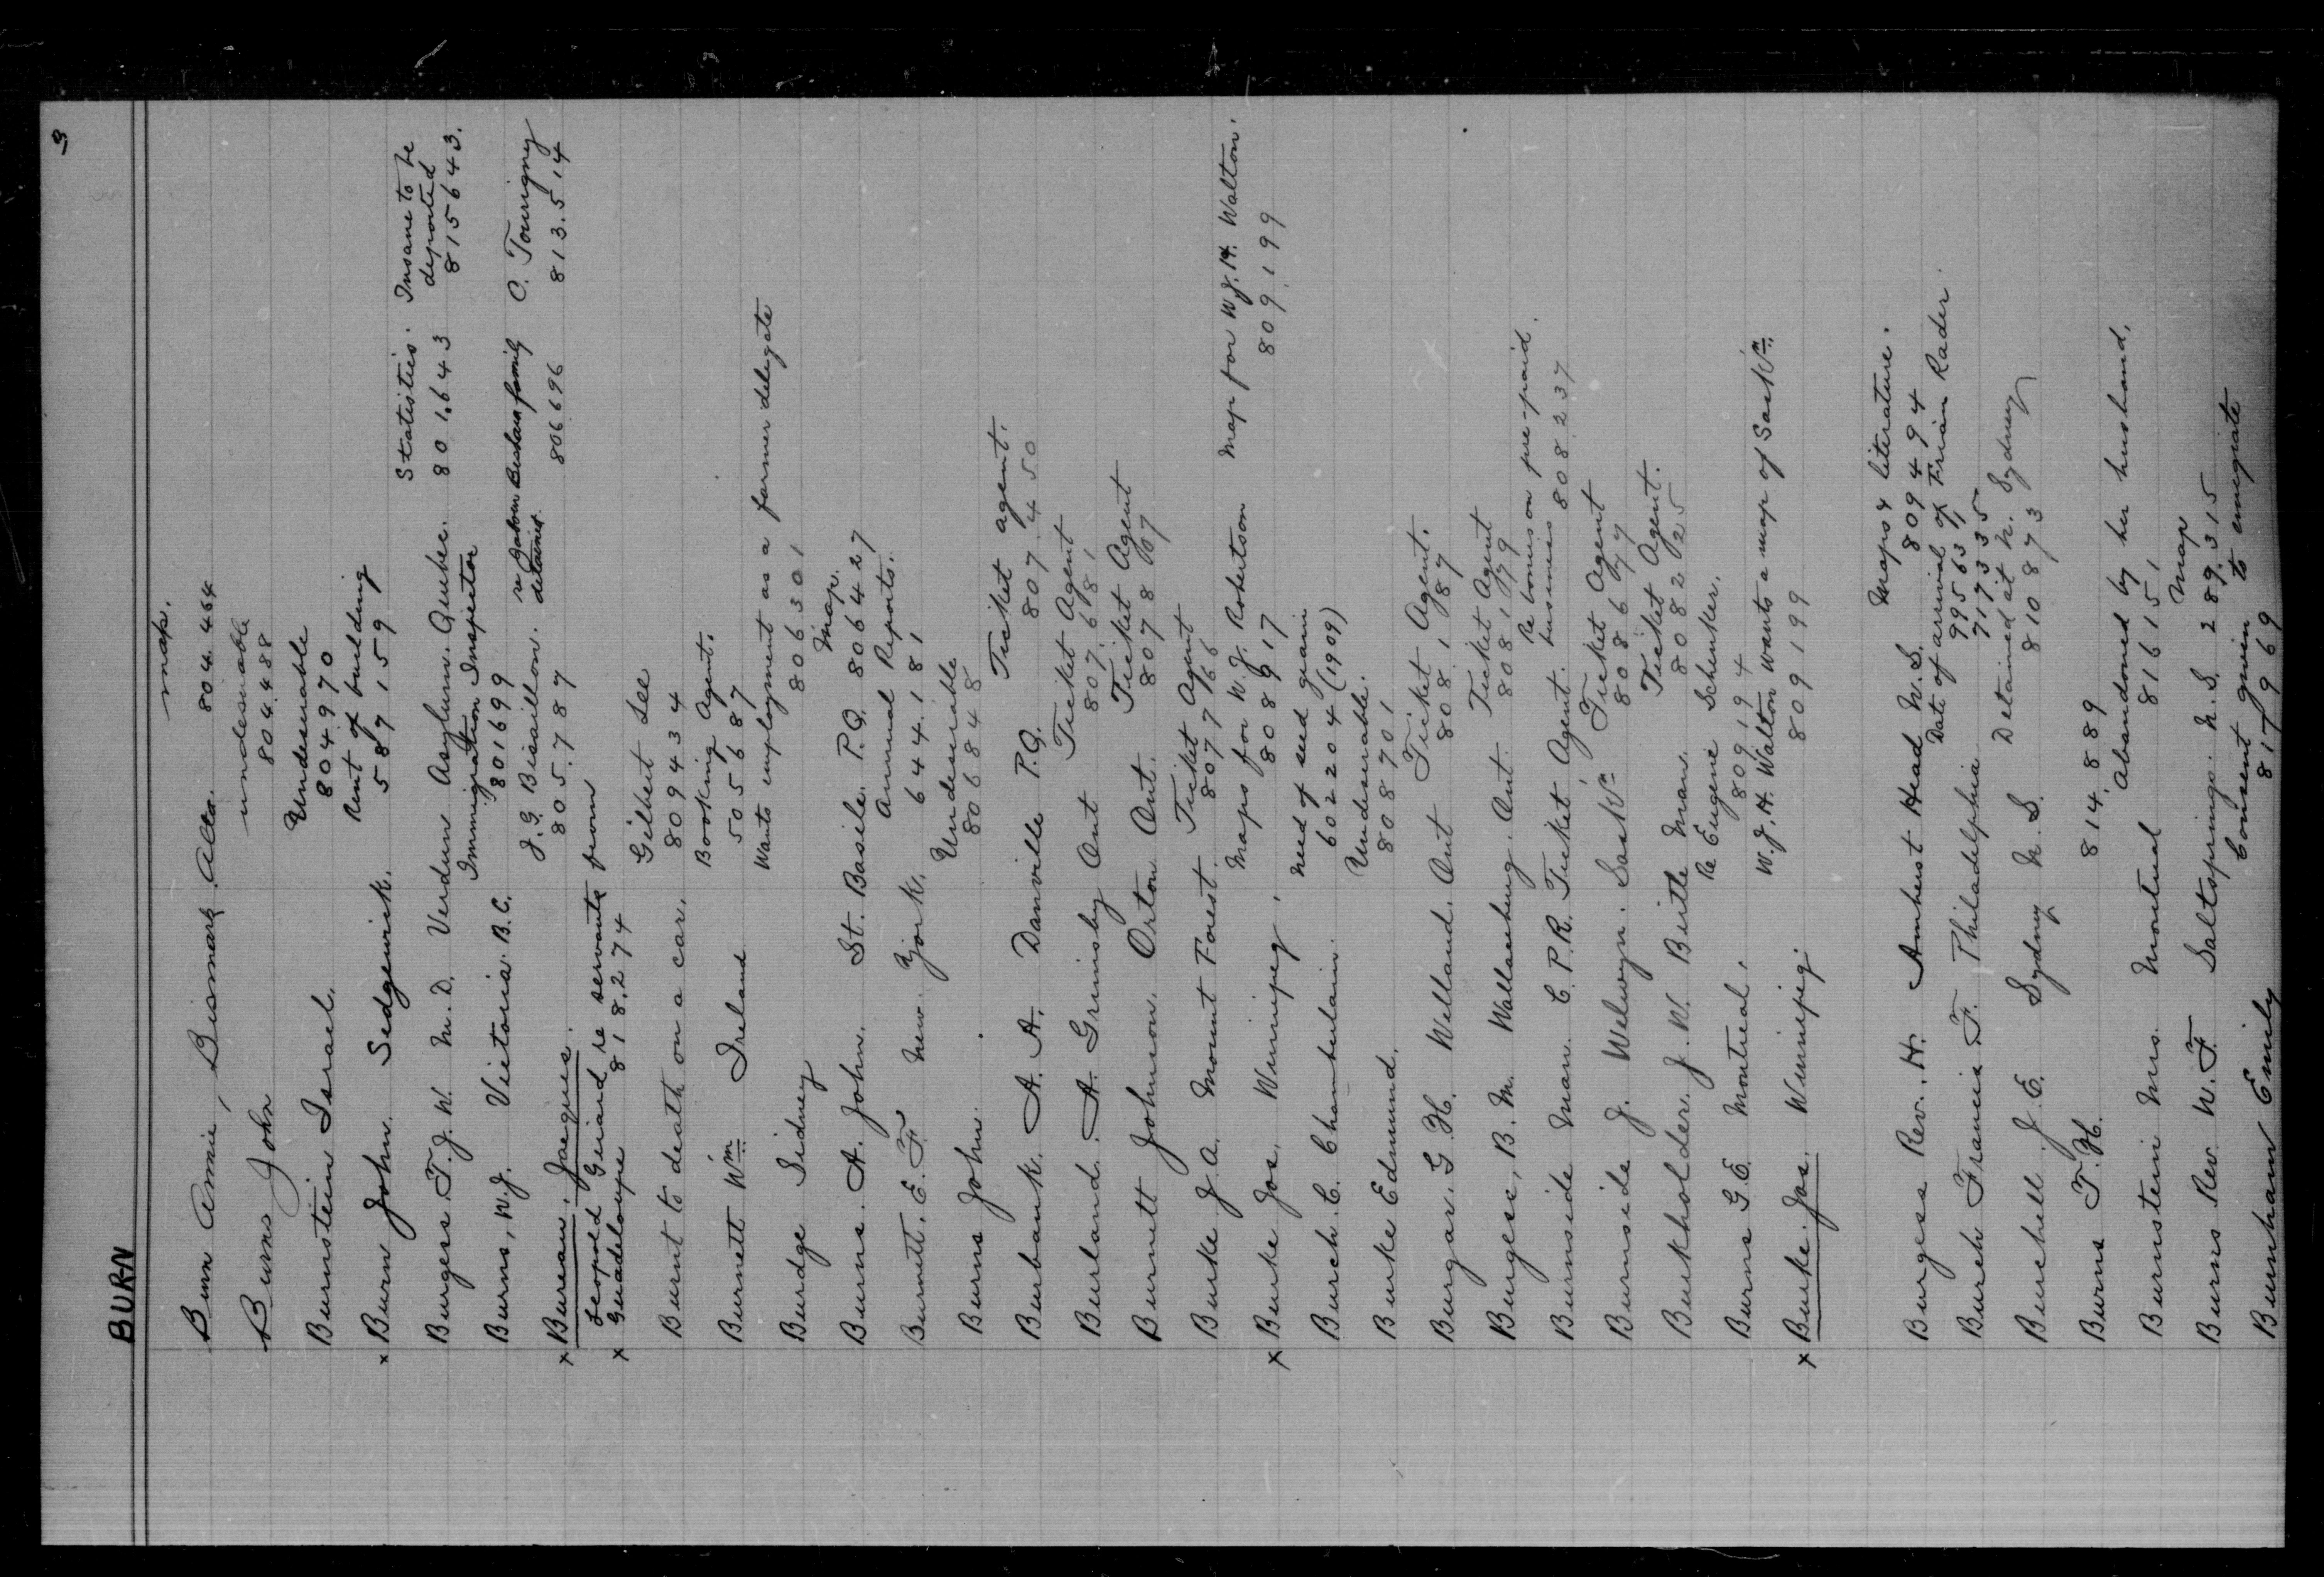 9
BURN
map.
Burn Annie, Bismark Alta. 804.464
undesirable
Burns John 804.488
Undesirable
Burnstein Israel. 804.970
Rent of building
x Burn John. Sedgewick. 587159
Statistics. Insane to be deported
Burgess T. J. W. M.D. Verdun Asylum. Quebec. 801.643 815643.
Immigration Inspector
Burns, W.J. Victoria B.C. 801699
J. G. Bisaillon. re family detained. C. Tourigney
x Bureau. Jacques. 805.787 806696 813.514
Leopold Guiand re servants from
x Guadeloupe 818.274
Gilbert Lee
Burnt to death on a car. 809434
Booking Agent.
Burnett Wm Ireland 505687
Wants employment as a farmer delegate
Burdge Sidney 806301
Map.
Burns. A. John. St. Basile. P.Q. 806427
Annual Reports.
Burnett. E. F. New York. 644.181
Undesirable
Burns John. 806848
Ticket agent.
Burbank. A. A. Danville P.Q. 807.450
Ticket Agent
Burland. A. Grimsby Ont 807.681
Ticket Agent
Burnett Johnson. Orton Ont. 807867
Ticket Agent
Burke J. A. Mount Forest. 807766
Maps for W. J. Robertson Map for W.J.H. Walton.
x Burke Jos. Winnipeg. 808917 809.199
Need of seed grain
Burch. C. Chamberlain. 602204 (1909)
Undesirable.
Burke Edmund. 808701
Ticket Agent.
Burgar. G. H. Welland. Ont 808.187
Ticket Agent
Burgess, B. M. Wallaceburg. Ont. 808179
Re bonus on pre-paid
Burnside Man. C.P.R. Ticket Agent. business 808237
Ticket Agent
Burnside J. Welwyn. Saskn 808677
Ticket Agent.
Burkholder. J. W. Birtle Man. 808225
Re Eugene Schenker.
Burns G. E. Montreal. 809194
W. J. H. Walton wants a map of Saskn.
x Burke. Jos. Winnipeg. 809199
Maps & literature.
Burgess Rev. H. Amherst Head N.S. 809494
Date of arrival of Rader.
995631
Burch Francis F. Philadelphia 717335
Detained at N. Sydney
Burchell. J. E. Sydney N.S. 810873
Burns T. H. 814.889
Abandoned by her husband.
Burnstein Mrs. Montreal 816151
Map
Burns Rev. W. F. Saltsprings. N.S. 289.315
Consent given to emigrate
Burnham Emily 817969